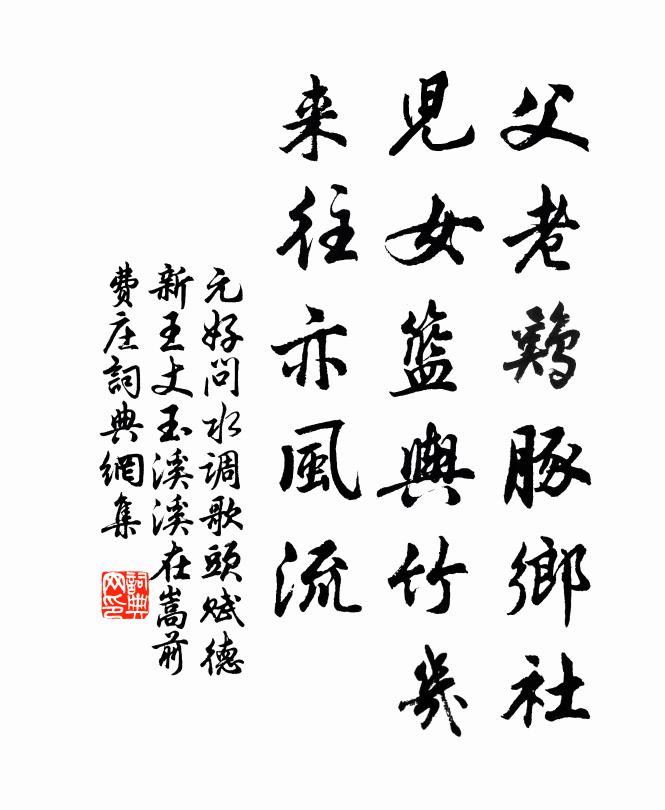 父老鷄豚鄉社
兒女籃輿竹几
来往亦風流
元好問水调歌頭赋德
新王丈玉溪溪在嵩前
費庄詞典網集
詞典网印